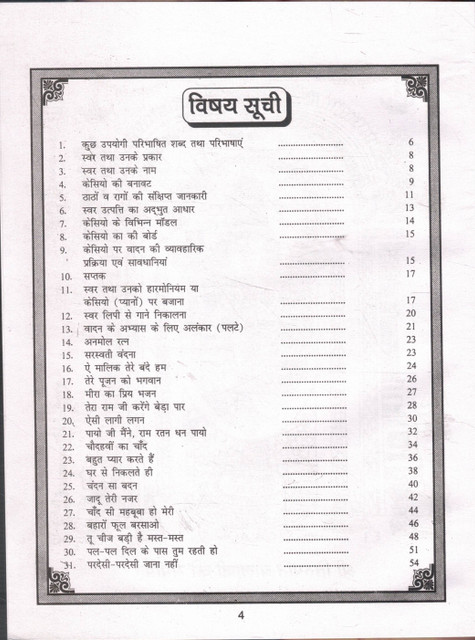 विषय सूची
1. कुछ उपयोगी परिभाषित शब्द तथा परिभाषाएं ........................ 6
2. स्वर तथा उनके प्रकार ........................ 8
3. स्वर तथा उनके नाम ........................ 8
4. केसियो की बनावट ........................ 9
5. ठाठों व रागों की संक्षिप्त जानकारी ........................ 11
6. स्वर उत्पत्ति का अद्भुत आधार ........................ 13
7. केसियो के विभिन्न मॉडल ........................ 14
8. केसियो का की बोर्ड ........................ 15
9. केसियो पर वादन की व्यावहारिक
प्रक्रिया एवं सावधानियां ........................ 15
10. सप्तक ........................ 17
11. स्वर तथा उनको हारमोनियम या
केसियो (प्यानो) पर बजाना ........................ 17
12. स्वर लिपी से गाने निकालना ........................ 20
13. वादन के अभ्यास के लिए अलंकार (पलटे) ........................ 21
14. अनमोल रत्न ........................ 23
15. सरस्वती वंदना ........................ 23
16. ऐ मालिक तेरे बंदे हम ........................ 24
17. तेरे पूजन को भगवान ........................ 26
18. मीरा का प्रिय भजन ........................ 27
19. तेरा राम जी करेंगे बेड़ा पार ........................ 28
20. ऐसी लागी लगन ........................ 30
21. पायो जी मैंने, राम रतन धन पायो ........................ 32
22. चौदहवीं का चाँद ........................ 34
23. बहुत प्यार करते हैं ........................ 36
24. घर से निकलते ही ........................ 38
25. चंदन सा बदन ........................ 40
26. जादू तेरी नजर ........................ 42
27. चाँद सी महबूबा हो मेरी ........................ 44
28. बहारों फूल बरसाओ ........................ 46
29. तू चीज बड़ी है मस्त-मस्त ........................ 48
30. पल-पल दिल के पास तुम रहती हो ........................ 51
31. परदेसी-परदेसी जाना नहीं ........................ 54
4